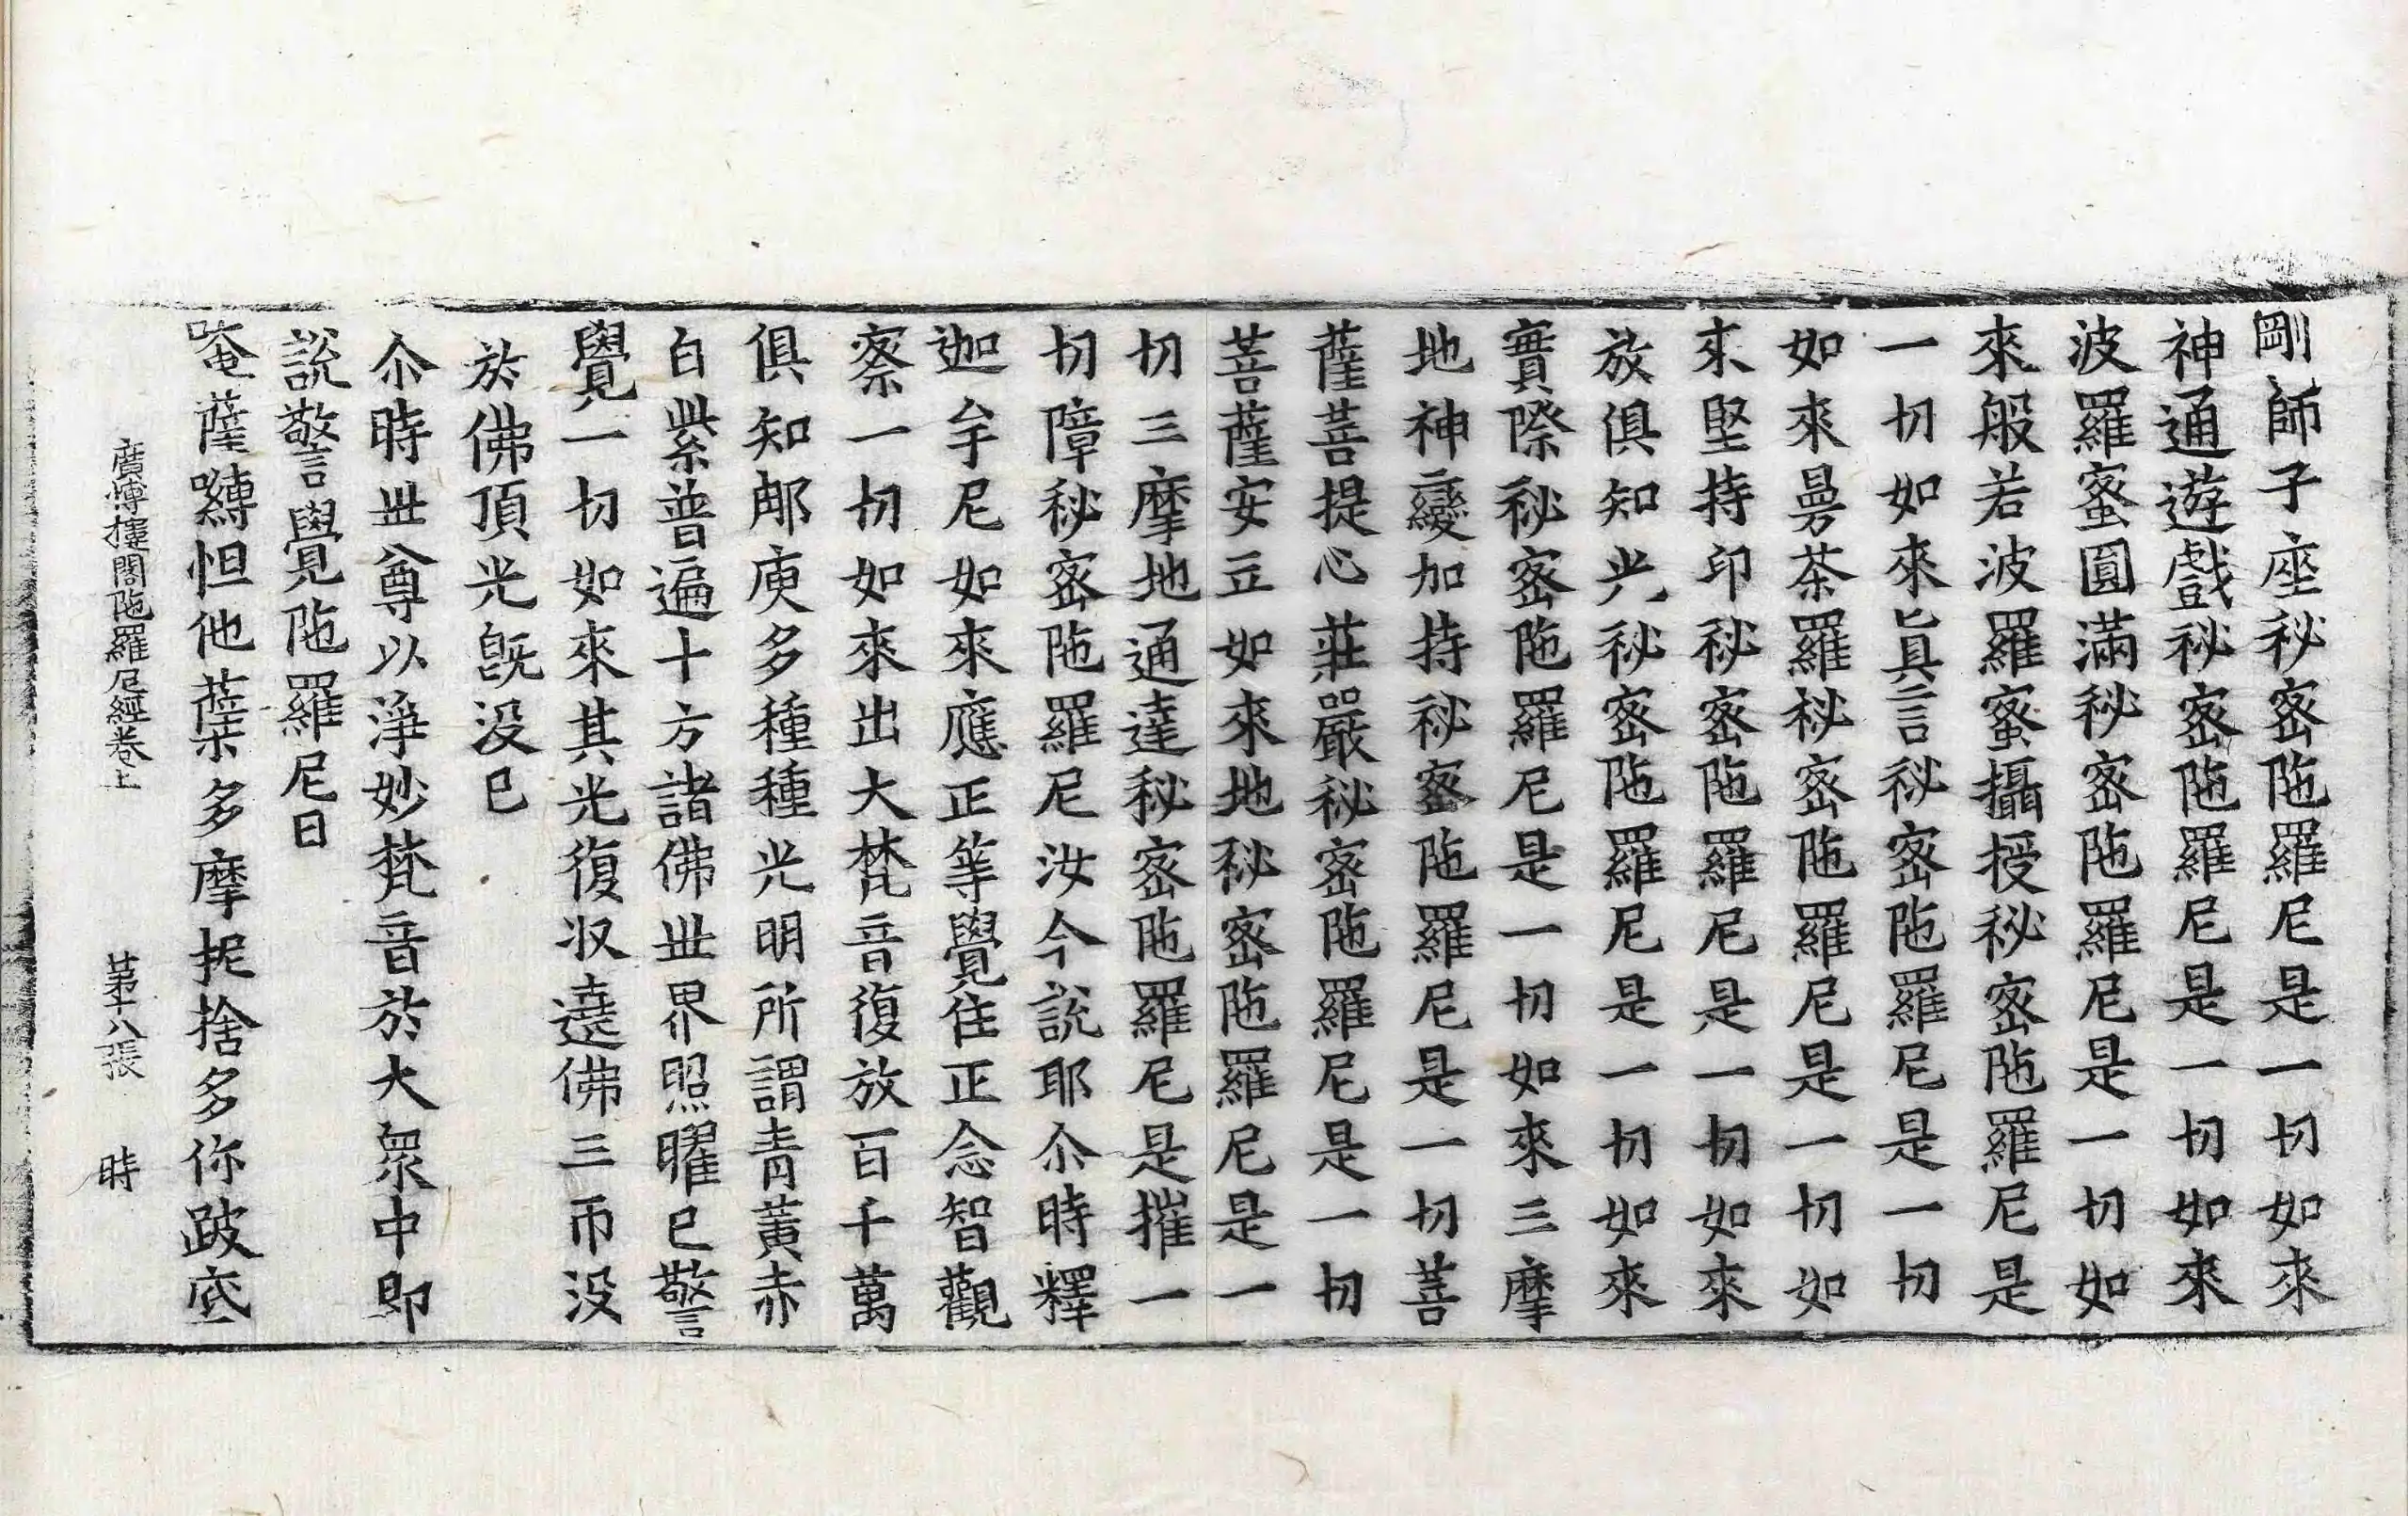 剛師子座秘密陁羅尼是一切如來
神通遊戲秘密陁羅尼是一切如來
波羅蜜圓滿秘密陁羅尼是一切如
來般若波羅蜜攝授秘密陁羅尼是
一切如來真言秘密陁羅尼是一切
如來曼荼羅秘密陁羅尼是一切如
來堅持印秘密陁羅尼是一切如來
放俱知光秘密陁羅尼是一切如來
實際秘密陁羅尼是一切如來三摩
地神變加持秘密陁羅尼是一切菩
薩菩提心莊嚴秘密陁羅尼是一切
菩薩安立如來地秘密陁羅尼是一
切三摩地通達秘密陁羅尼是摧一
切障秘密陁羅尼汝今說耶尒時釋
迦牟尼如來應正等覺住正念智觀
察一切如來出大梵音復放百千萬
俱知𨙻庾多種種光明所謂青黃赤
白紫普遍十方諸佛世界照曜已警
覺一切如來其光復収遶佛三帀没
於佛頂光旣没已
尒時世尊以淨妙梵音於大衆中即
說警覺陁羅尼曰
唵薩嚩怛他蘖多摩抳捨多你跛底
廣博樓閣陁羅尼經卷上 苐十八張 時